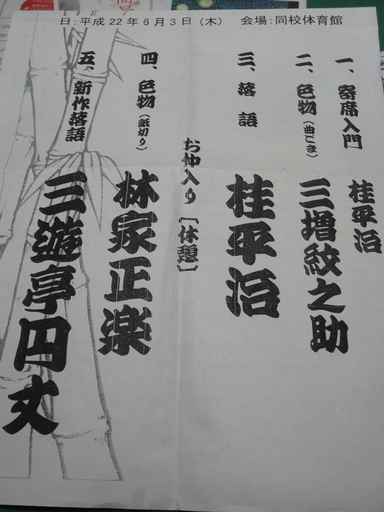 日:平成22年6月3日(木) 会場:同校体育館
一、寄席入門 桂平治
二、色物(曲ごま) 三増紋之助
三、落語 桂平治
お仲入り[休憩]
四、色物(紙切り) 林家正楽
五、新作落語 三遊亭円丈